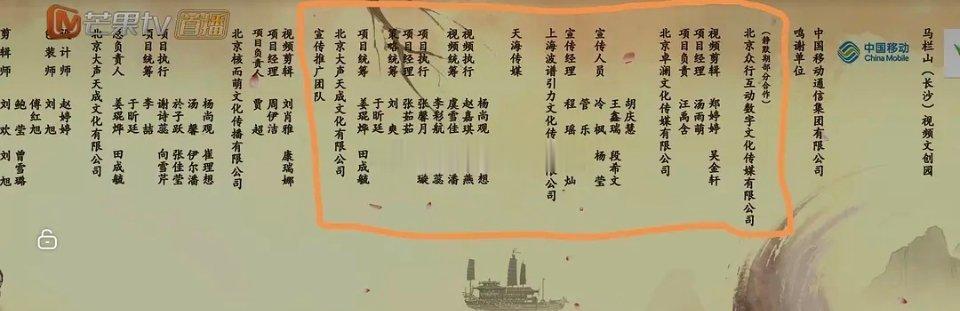 芒果tv 直播
剪辑师 刘欢 刘旭
鲍莹 曾雪璐
傅红旭
装师 刘旭
计师 赵婷婷
北京大声天成文化有限公司
总负责人 姜琨烨 田成毓
于昕廷
项目统筹 李喆
项目执行 谢诗蕊 向雪芹
於子跃 张佳莹
汤馨 伊尔潘
杨尚观 崔理想
北京核而萌文化传播有限公司
项目负责人 贾超
项目经理 周伊洁
视频剪辑 刘肖雅 康瑞娜
宣传推广团队
北京大声天成文化有限公司
项目统筹 姜琨烨 田成毓
于昕廷
策略统筹 刘爽
项目经理 张茹茹
项目执行 张馨月 璇
李彩航 蕊
视频统筹 虞雪佳 潘
视频执行 赵嘉琪 燕
杨尚观 想
天海传媒
上海波谱引力文化传 限公司
宣传经理 程瑶 灿
管乐
宣传人员 冷枫 杨莹
王鑫瑞 段希文
胡庆慧
北京卓澜文化传媒有限公司
项目负责 汪禹含
项目经理 汤雨萌
视频剪辑 郑婷婷 吴金轩
北京众行互动数字文化传媒有限公司
（静默期部分合作）
鸣谢单位
中国移动通信集团有限公司
中国移动
China Mobile
马栏山（长沙）视频文创园